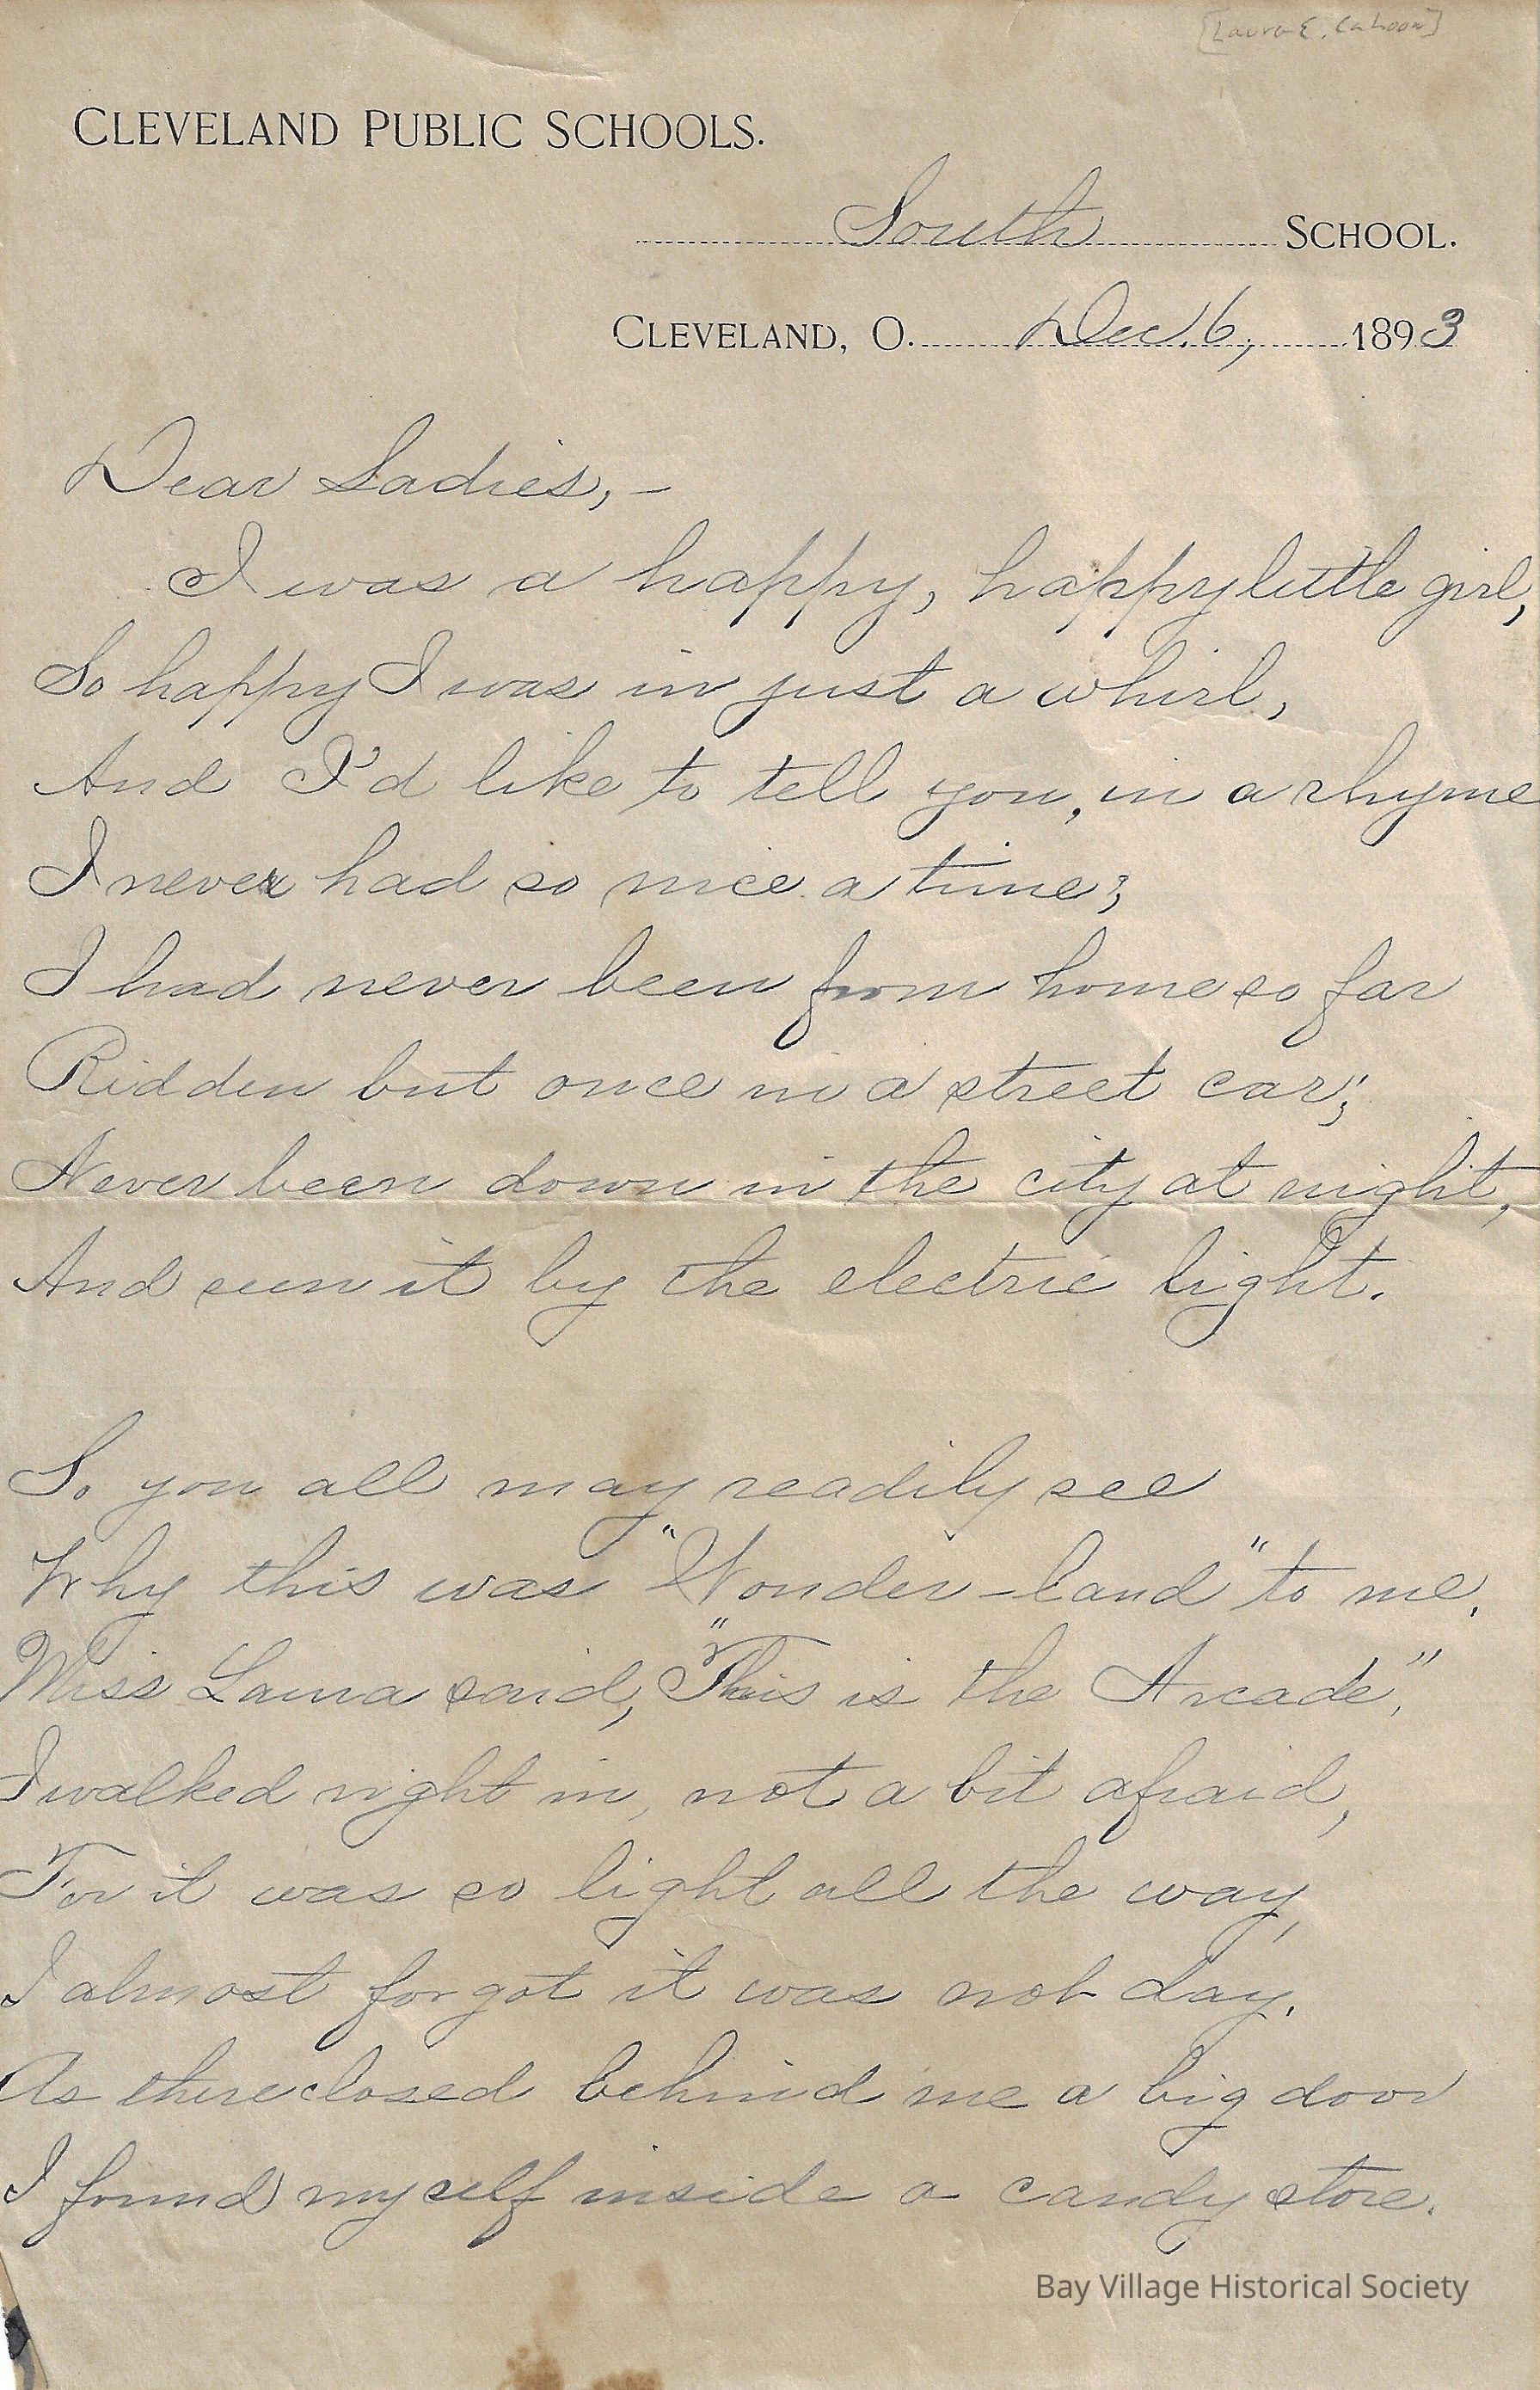 [Laura E. Cahoon]
CLEVELAND PUBLIC SCHOOLS.
South SCHOOL.
CLEVELAND, O. Dec. 6, 1893
Dear Ladies,-
I was a happy, happy little girl,
So happy I was in just a whirl,
And I'd like to tell you, in a rhyme
I never had so nice a time;
I had never been from home so far
Ridden but once in a street car;
Never been down in the city at night,
And seen it by the electric light.
So you all may readily see
Why this was "Wonder-land" to me.
Miss Laura said, "This is the Arcade,"
I walked right in, not a bit afraid,
For it was so light all the way,
I almost forgot it was not day.
As there closed behind me a big door
I found myself inside a candy store.
Bay Village Historical Society